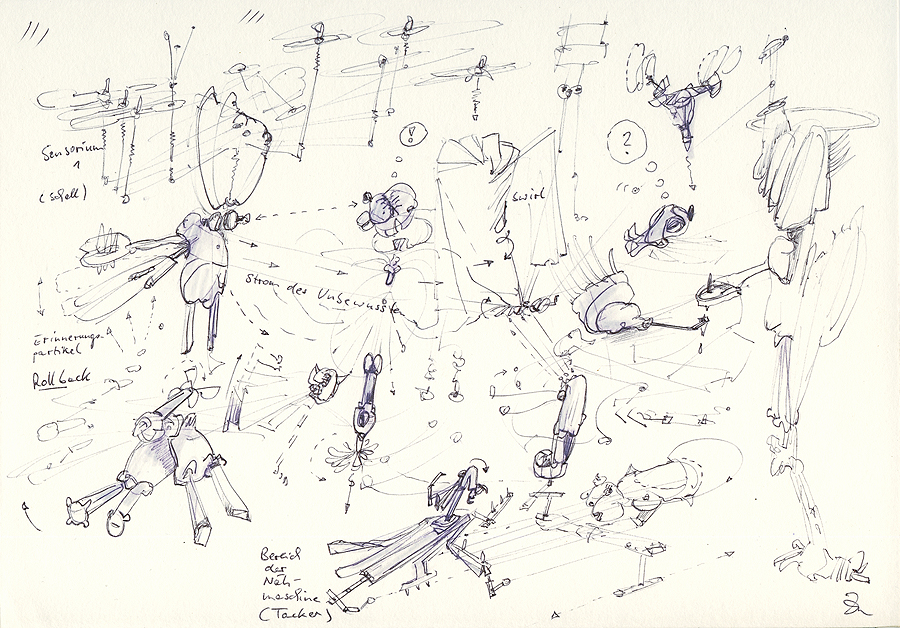 Sensorium
1
(schnell)
!
?
swirl
Strom des Unbewußten
Erinnerungs-
partikel
Rollback
Bereich
der
Näh-
maschine
(Tacker)